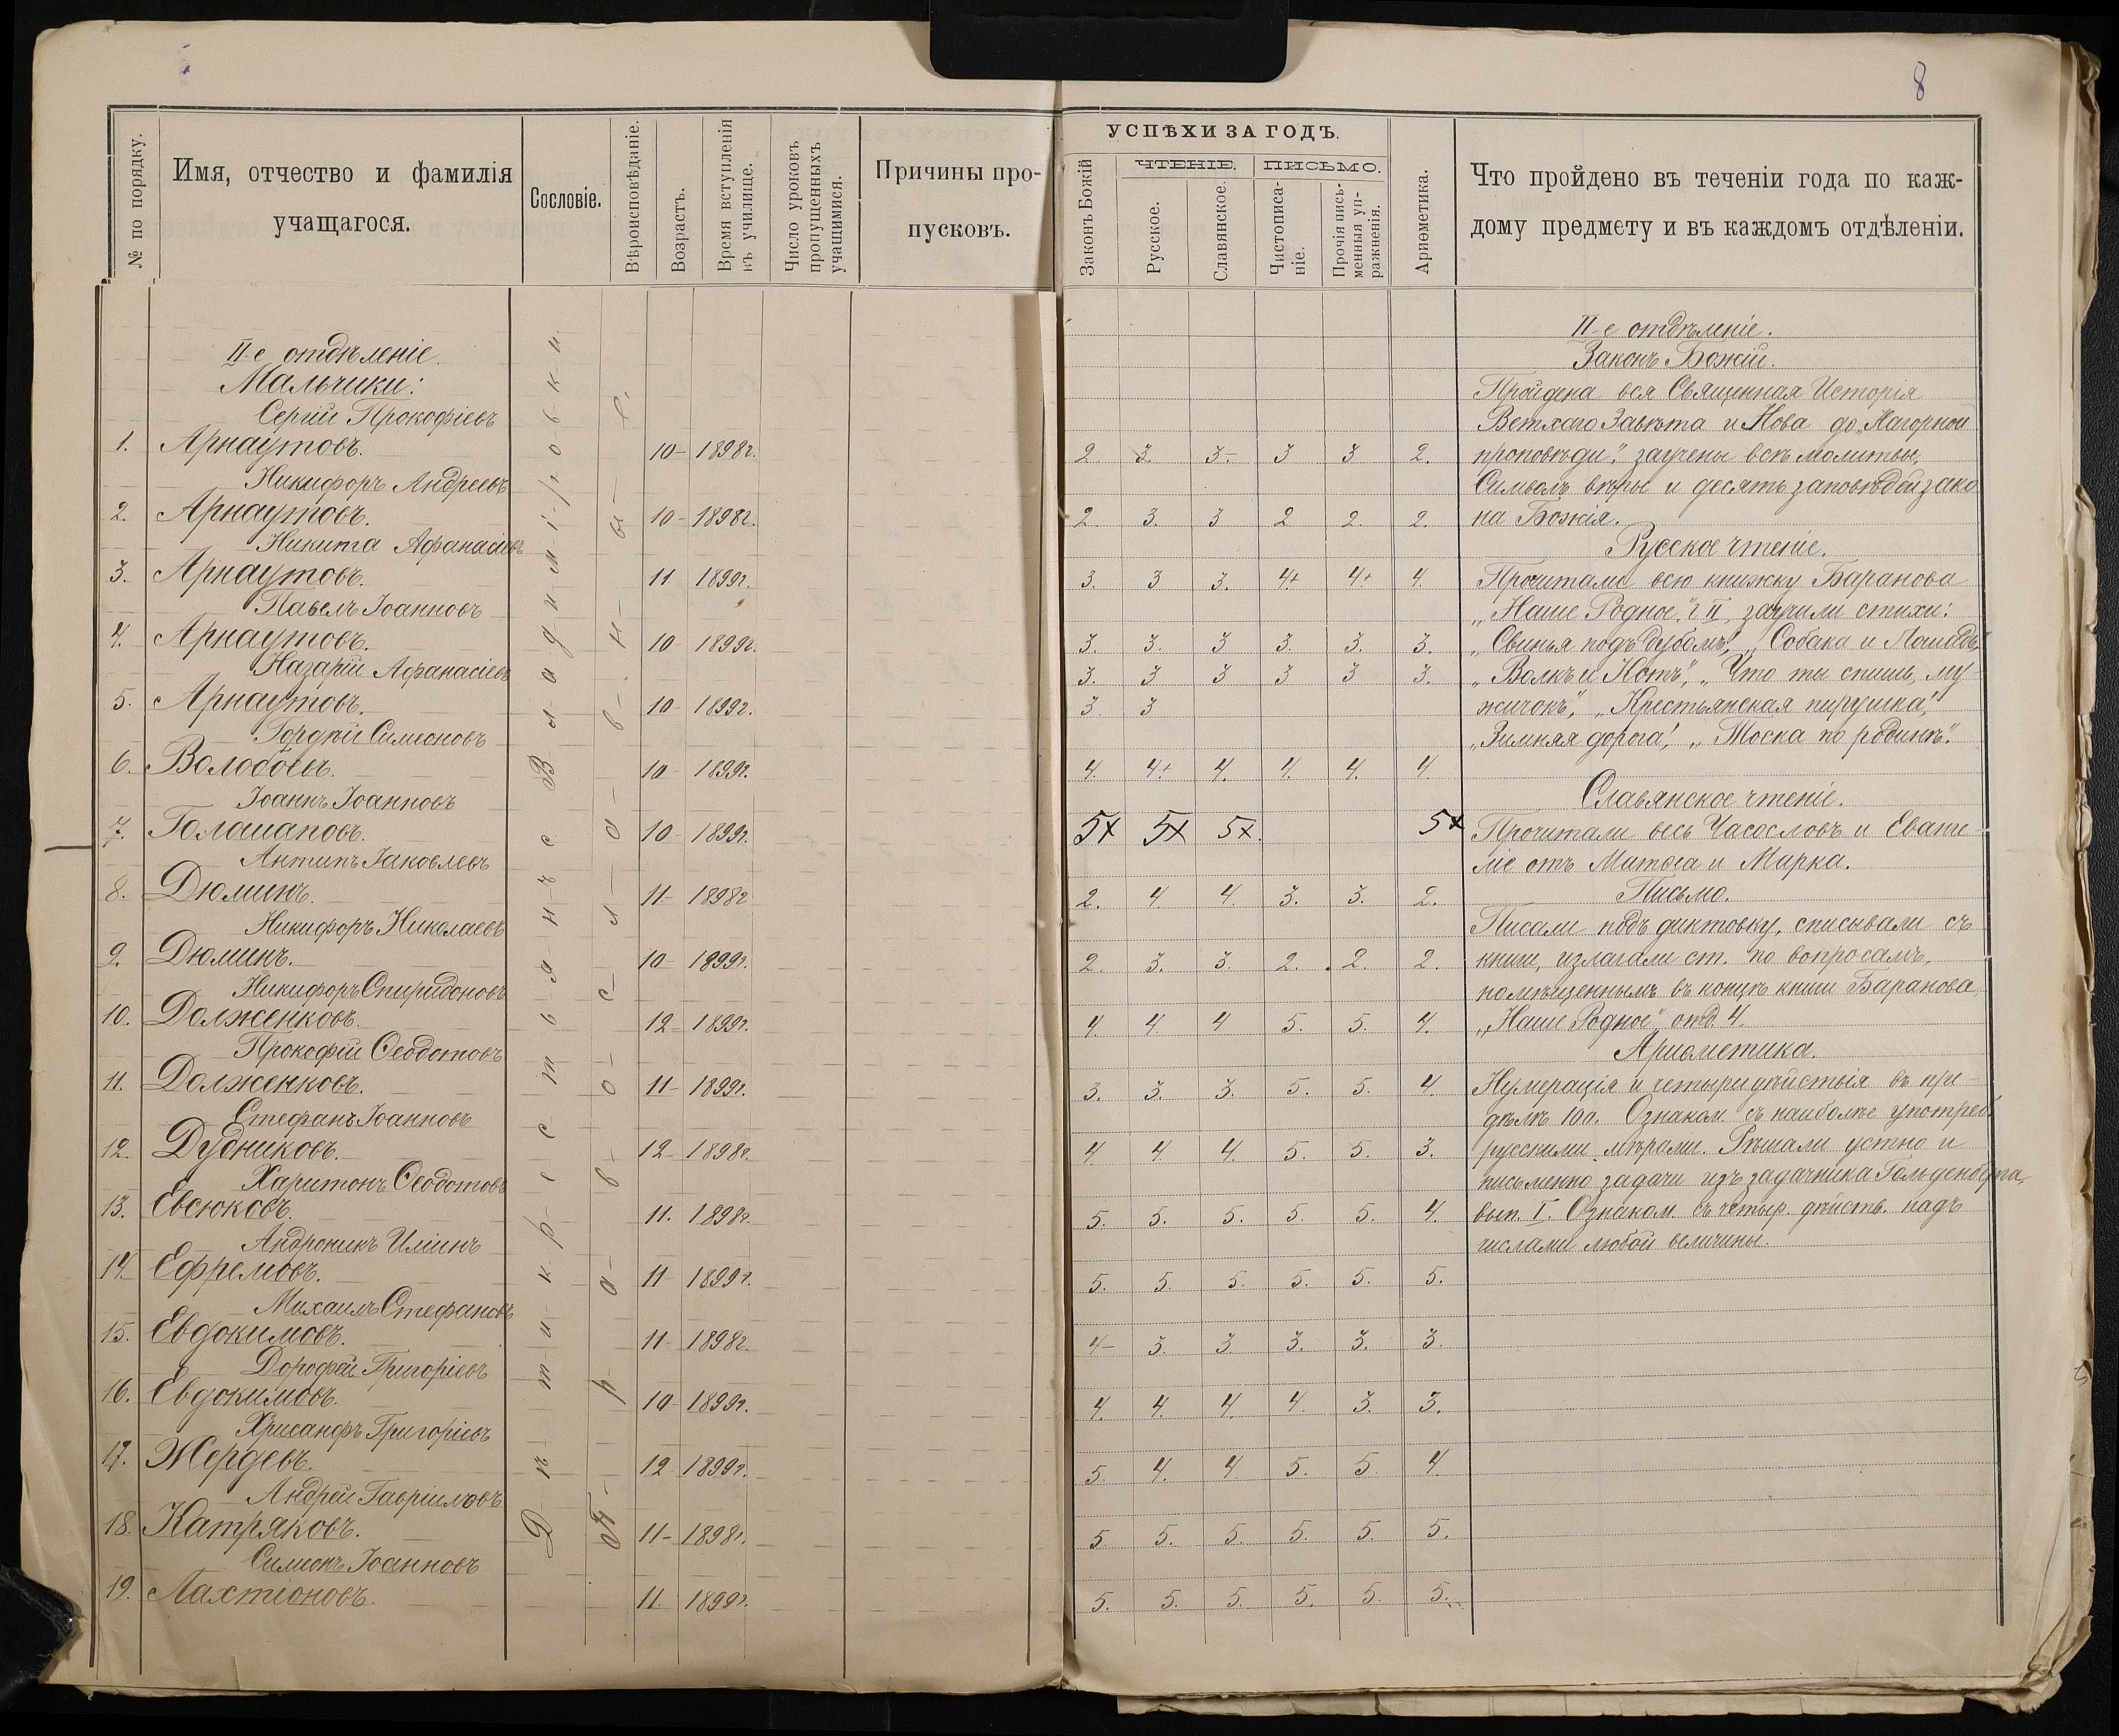 8
№ по порядку.
Имя, отчество и фамилія
учащагося.
Сословіе.
Вѣроисповѣданіе.
Возрастъ.
Время вступленія
въ училище.
Число уроковъ
пропущенныхъ
учащимися.
Причины про-
пусковъ.
II-е отдѣленіе.
Мальчики:
Сергій Прокофіевъ
1. Арнаутовъ. 10- 1898г.
Никифоръ Андреевъ
2. Арнаутовъ. 10- 1898г.
Никита Афанасіевъ
3. Арнаутовъ. 11 1899г.
Павелъ Іоанновъ
4. Арнаутовъ. 10- 1899г.
Назарій Афанасіевъ
5. Арнаутовъ. 10- 1899г.
Гордѣй Симеоновъ
6. Волобоевъ. 10- 1899г.
Іоаннъ Іоанновъ
7. Голощаповъ. 10- 1899г.
Антипъ Іаковлевъ
8. Дюминъ. 11- 1898г
Никифоръ Николаевъ
9. Дюминъ. 10- 1899г.
Никифоръ Спиридоновъ
10. Долженковъ. 12- 1899г.
Прокофій Ѳеодотовъ
11. Долженковъ. 11- 1899г.
Стефанъ Іоанновъ
12. Дудниковъ. 12- 1898г.
Харитонъ Ѳеодотовъ
13. Евсюковъ. 11. 1898г.
Андроникъ Иліинъ
14. Ефремовъ. 11- 1899г.
Михаилъ Стефановъ
15. Евдокимовъ. 11- 1898г.
Дорофей Григоріевъ
16. Евдокимовъ. 10- 1899г.
Хрисанфъ Григоріевъ
17. Жердевъ. 12- 1899г.
Андрей Гавріиловъ
18. Катряковъ. 11- 1898г.
Симеонъ Іоанновъ
19. Лахтіоновъ. 11. 1899г.
УСПѢХИ ЗА ГОДЪ.
Законъ Божій
ЧТЕНІЕ.
ПИСЬМО.
Русское.
Славянское.
Чистописа-
ніе.
Прочія пись-
менныя уп-
ражненія.
Ариѳметика.
2 3. 3- 3 3 2.
2 3. 3 2 2. 2.
3. 3 3. 4+ 4+ 4.
3. 3. 3 3. 3. 3.
3. 3 3 3 3 3.
3 3
4. 4+ 4. 4. 4. 4
5+ 5+ 5+. 5+
2. 4 4. 3. 3. 2.
2. 3. 3. 2. 2. 2.
4. 4 4 5. 5. 4.
3. 3. 3. 5. 5. 4.
4. 4. 4. 5. 5. 3.
5. 5. 5. 5. 5. 4.
5. 5. 5. 5. 5. 5.
4- 3. 3. 3. 3. 3.
4. 4. 4. 4. 3. 3.
5. 4. 4 5. 5. 4.
5. 5. 5. 5. 5. 5.
5. 5. 5. 5. 5. 5.
Что пройдено въ теченіи года по каж-
дому предмету и въ каждомъ отдѣленіи.
II-е отдѣленіе.
Законъ Божій.
Пройдена вся Священная Исторія
Ветхаго Завѣта и Нова до „Нагорной
проповѣди", заучены всѣ молитвы,
Символъ вѣры и десять заповѣдей зако
на Божія.
Русское чтеніе.
Прочитали всю книжку Баранова
„Наше Родное" г. II, заучили стихи:
„Свинья подъ дубомъ", „Собака и Лошадь",
„Волкъ и Котъ", „Что ты спишь, му-
жичокъ", „Крестьянская пирушка",
„Зимняя дорога", „Тоска по родинѣ".
Славянское чтеніе.
Прочитали весь Часословъ и Еванге-
ліе отъ Матѳея и Марка.
Письмо.
Писали подъ диктовку, списывали съ
книги, излагали ст. по вопросамъ,
помѣщеннымъ въ концѣ книги Баранова,
„Наше Родное" отд. 4.
Ариѳметика.
Нумерація и четыри дѣйствія въ пре-
дѣлѣ 100. Ознаком. съ наиболѣе употреб.
русскими мѣрами. Рѣшали устно и
письменно задачи изъ задачника Гольденберга,
вып. I. Ознаком. съ четыр. дѣйств. надъ
числами любой величины.